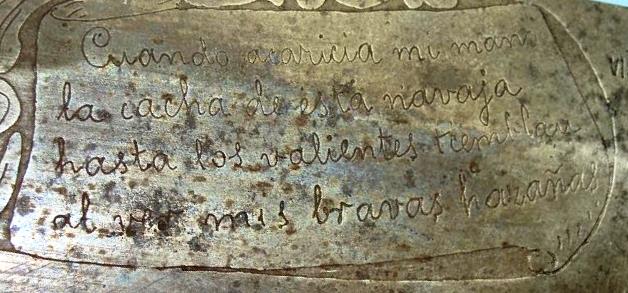 Cuando acaricia mi man
la cacha de ésta navaja
hasta los valientes tiemblan
al ver mis bravas hazañas